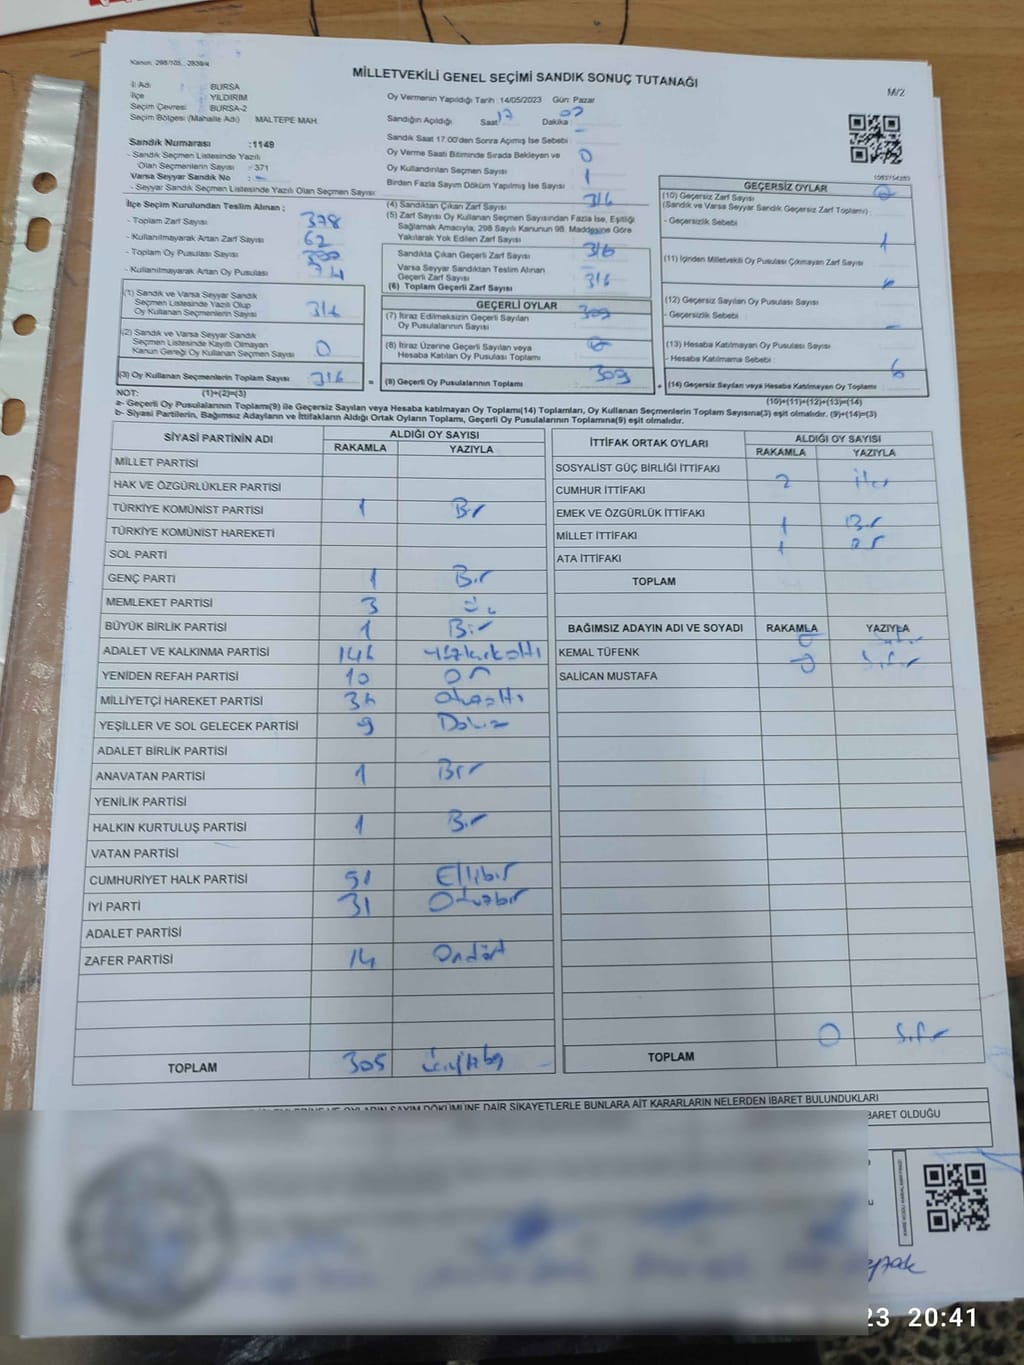 Kanun: 298/105, 2839/4
MİLLETVEKİLİ GENEL SEÇİMİ SANDIK SONUÇ TUTANAĞI
M/2
İl Adı : BURSA
İlçe : YILDIRIM
Seçim Çevresi : BURSA-2
Seçim Bölgesi (Mahalle Adı) MALTEPE MAH.
Sandık Numarası :1149
- Sandık Seçmen Listesinde Yazılı
Olan Seçmenlerin Sayısı : 371
Varsa Seyyar Sandık No : -
- Seyyar Sandık Seçmen Listesinde Yazılı Olan Seçmen Sayısı:
Oy Vermenin Yapıldığı Tarih :14/05/2023 Gün: Pazar
Sandığın Açıldığı Saat 17 Dakika :
Sandık Saat 17.00'den Sonra Açılmış İse Sebebi : -
Oy Verme Saati Bitiminde Sırada Bekleyen ve
Oy Kullandırılan Seçmen Sayısı : 0
Birden Fazla Sayım Döküm Yapılmış İse Sayısı : 1
İlçe Seçim Kurulundan Teslim Alınan ;
- Toplam Zarf Sayısı : 378
- Kullanılmayarak Artan Zarf Sayısı : 62
- Toplam Oy Pusulası Sayısı :
- Kullanılmayarak Artan Oy Pusulası : 74
(1) Sandık ve Varsa Seyyar Sandık
Seçmen Listesinde Yazılı Olup
Oy Kullanan Seçmenlerin Sayısı : 316
(2) Sandık ve Varsa Seyyar Sandık
Seçmen Listesinde Kayıtlı Olmayan
Kanun Gereği Oy Kullanan Seçmen Sayısı : 0
(3) Oy Kullanan Seçmenlerin Toplam Sayısı : 316
(4) Sandıktan Çıkan Zarf Sayısı : 316
(5) Zarf Sayısı Oy Kullanan Seçmen Sayısından Fazla İse, Eşitliği
Sağlamak Amacıyla, 298 Sayılı Kanunun 98. Maddesine Göre
Yakılarak Yok Edilen Zarf Sayısı :
Sandıkta Çıkan Geçerli Zarf Sayısı : 316
Varsa Seyyar Sandıktan Teslim Alınan
Geçerli Zarf Sayısı : -
(6) Toplam Geçerli Zarf Sayısı : 316
GEÇERLİ OYLAR
(7) İtiraz Edilmeksizin Geçerli Sayılan
Oy Pusulalarının Sayısı :
(8) İtiraz Üzerine Geçerli Sayılan veya
Hesaba Katılan Oy Pusulası Toplamı :
= (9) Geçerli Oy Pusulalarının Toplamı :
1083754283
GEÇERSİZ OYLAR
(10) Geçersiz Zarf Sayısı
(Sandık ve Varsa Seyyar Sandık Geçersiz Zarf Toplamı) :
- Geçersizlik Sebebi :
(11) İçinden Milletvekili Oy Pusulası Çıkmayan Zarf Sayısı : 1
(12) Geçersiz Sayılan Oy Pusulası Sayısı :
- Geçersizlik Sebebi : -
(13) Hesaba Katılmayan Oy Pusulası Sayısı :
- Hesaba Katılmama Sebebi :
+ (14) Geçersiz Sayılan veya Hesaba Katılmayan Oy Toplamı : 6
NOT: (1)+(2)=(3) (10)+(11)+(12)+(13)=(14)
a- Geçerli Oy Pusulalarının Toplamı(9) ile Geçersiz Sayılan veya Hesaba katılmayan Oy Toplamı(14) Toplamları, Oy Kullanan Seçmenlerin Toplam Sayısına(3) eşit olmalıdır. (9)+(14)=(3)
b- Siyasi Partilerin, Bağımsız Adayların ve İttifakların Aldığı Ortak Oyların Toplamı, Geçerli Oy Pusulalarının Toplamına(9) eşit olmalıdır.
SİYASİ PARTİNİN ADI ALDIĞI OY SAYISI
RAKAMLA YAZIYLA
MİLLET PARTİSİ
HAK VE ÖZGÜRLÜKLER PARTİSİ
TÜRKİYE KOMÜNİST PARTİSİ 1 Bir
TÜRKİYE KOMÜNİST HAREKETİ
SOL PARTİ
GENÇ PARTİ 1 Bir
MEMLEKET PARTİSİ 3 Üç
BÜYÜK BİRLİK PARTİSİ 1 Bir
ADALET VE KALKINMA PARTİSİ 146 Yüzkırkaltı
YENİDEN REFAH PARTİSİ 10 On
MİLLİYETÇİ HAREKET PARTİSİ 36 Otuzaltı
YEŞİLLER VE SOL GELECEK PARTİSİ 9 Dokuz
ADALET BİRLİK PARTİSİ
ANAVATAN PARTİSİ 1 Bir
YENİLİK PARTİSİ
HALKIN KURTULUŞ PARTİSİ 1 Bir
VATAN PARTİSİ
CUMHURİYET HALK PARTİSİ 51 Ellibir
İYİ PARTİ 31 Otuzbir
ADALET PARTİSİ
ZAFER PARTİSİ 14 Ondört
TOPLAM 305 Üçyüzbeş
İTTİFAK ORTAK OYLARI ALDIĞI OY SAYISI
RAKAMLA YAZIYLA
SOSYALİST GÜÇ BİRLİĞİ İTTİFAKI
CUMHUR İTTİFAKI 2 iki
EMEK VE ÖZGÜRLÜK İTTİFAKI
MİLLET İTTİFAKI 1 Bir
ATA İTTİFAKI 1 Bir
TOPLAM
BAĞIMSIZ ADAYIN ADI VE SOYADI RAKAMLA YAZIYLA
KEMAL TÜFENK 0 Sıfır
SALİCAN MUSTAFA 0 Sıfır
TOPLAM 0 Sıfır
OYLARIN SAYIM DÖKÜMÜNE DAİR ŞİKAYETLERLE BUNLARA AİT KARARLARIN NELERDEN İBARET BULUNDUKLARI
BARET OLDUĞU
23 20:41